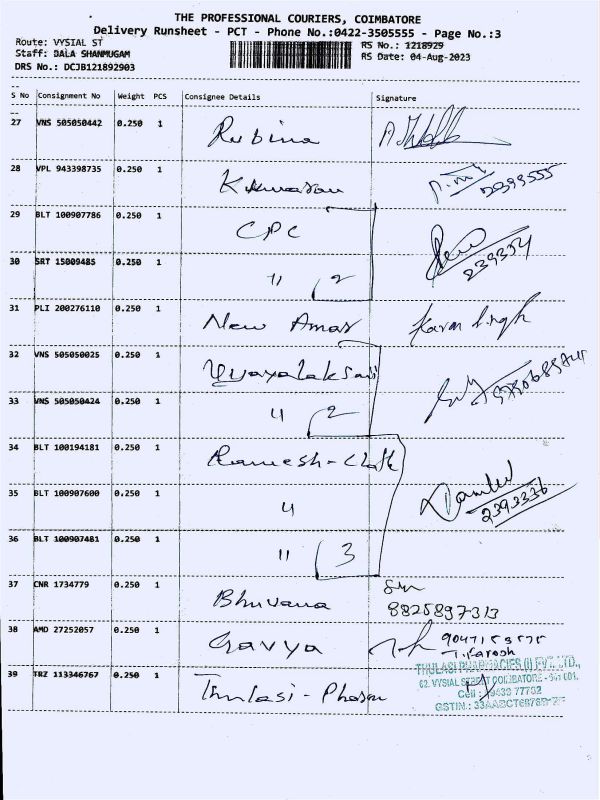 THE PROFESSIONAL COURIERS, COIMBATORE
Delivery Runsheet - PCT - Phone No.:0422-3505555 - Page No.:3
Route: VYSIAL ST
RS No.: 1218929
Staff: DALA SHANMUGAM
RS Date: 04-Aug-2023
DRS No.: DCJB121892903
S No Consignment No Weight PCS Consignee Details Signature
27 VNS 505050442 0.250 1 Rubina
28 VPL 943398735 0.250 1 Kumaran
29 BLT 100907786 0.250 1 CPC
30 SRT 15009485 0.250 1 " 2 239354
31 PLI 200276110 0.250 1 New Amar Karan Singh
32 VNS 505050025 0.250 1
33 VNS 505050424 0.250 1 " 2
34 BLT 100194181 0.250 1 Ramesh - Cloth
35 BLT 100907600 0.250 1 " 2393336
36 BLT 100907481 0.250 1 " 3
37 CNR 1734779 0.250 1 Bhuvana
8825897313
38 AMD 27252057 0.250 1 Gavya
39 TRZ 113346767 0.250 1 Thulasi - Pharm
THULASI PHARMACIES (I) PVT. LTD.,
62, VYSIAL STREET COIMBATORE - 641 001.
Cell : 9433 77702